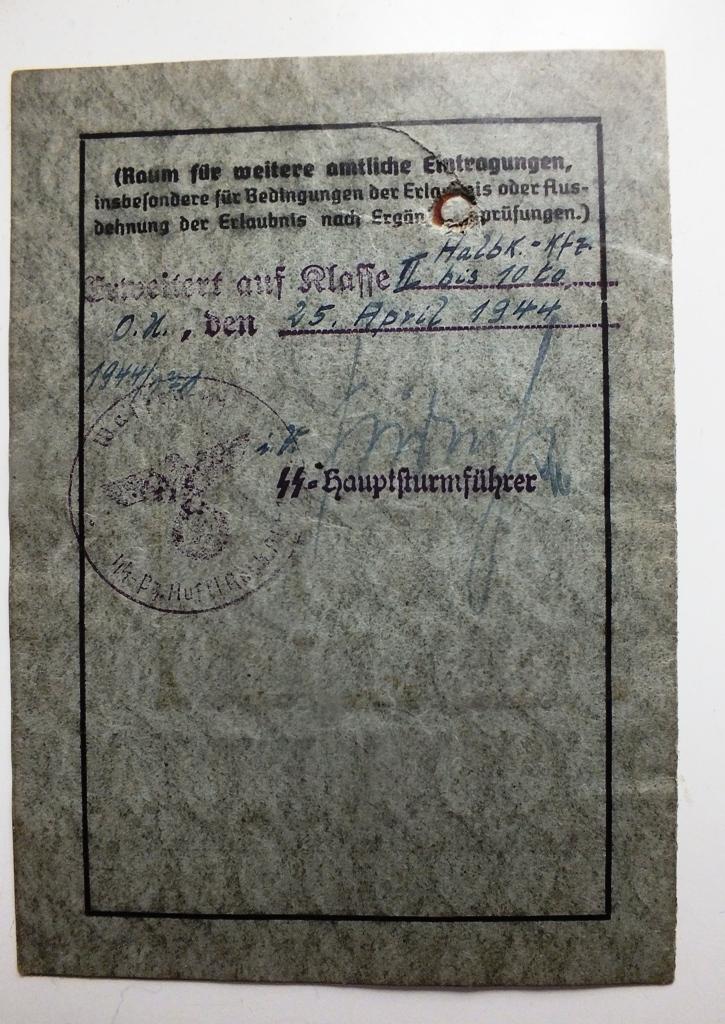 (Raum für weitere amtliche Eintragungen,
insbesondere für Bedingungen der Erlaubnis oder Aus-
dehnung der Erlaubnis nach Ergän prüfungen.)
Halbk.-Kfz.
Erweitert auf Klasse II bis 10 to.
O.U., den 25. April 1944
1944/
Waffen
i.V.
SS-Hauptsturmführer
SS-Pz. Aufkl.